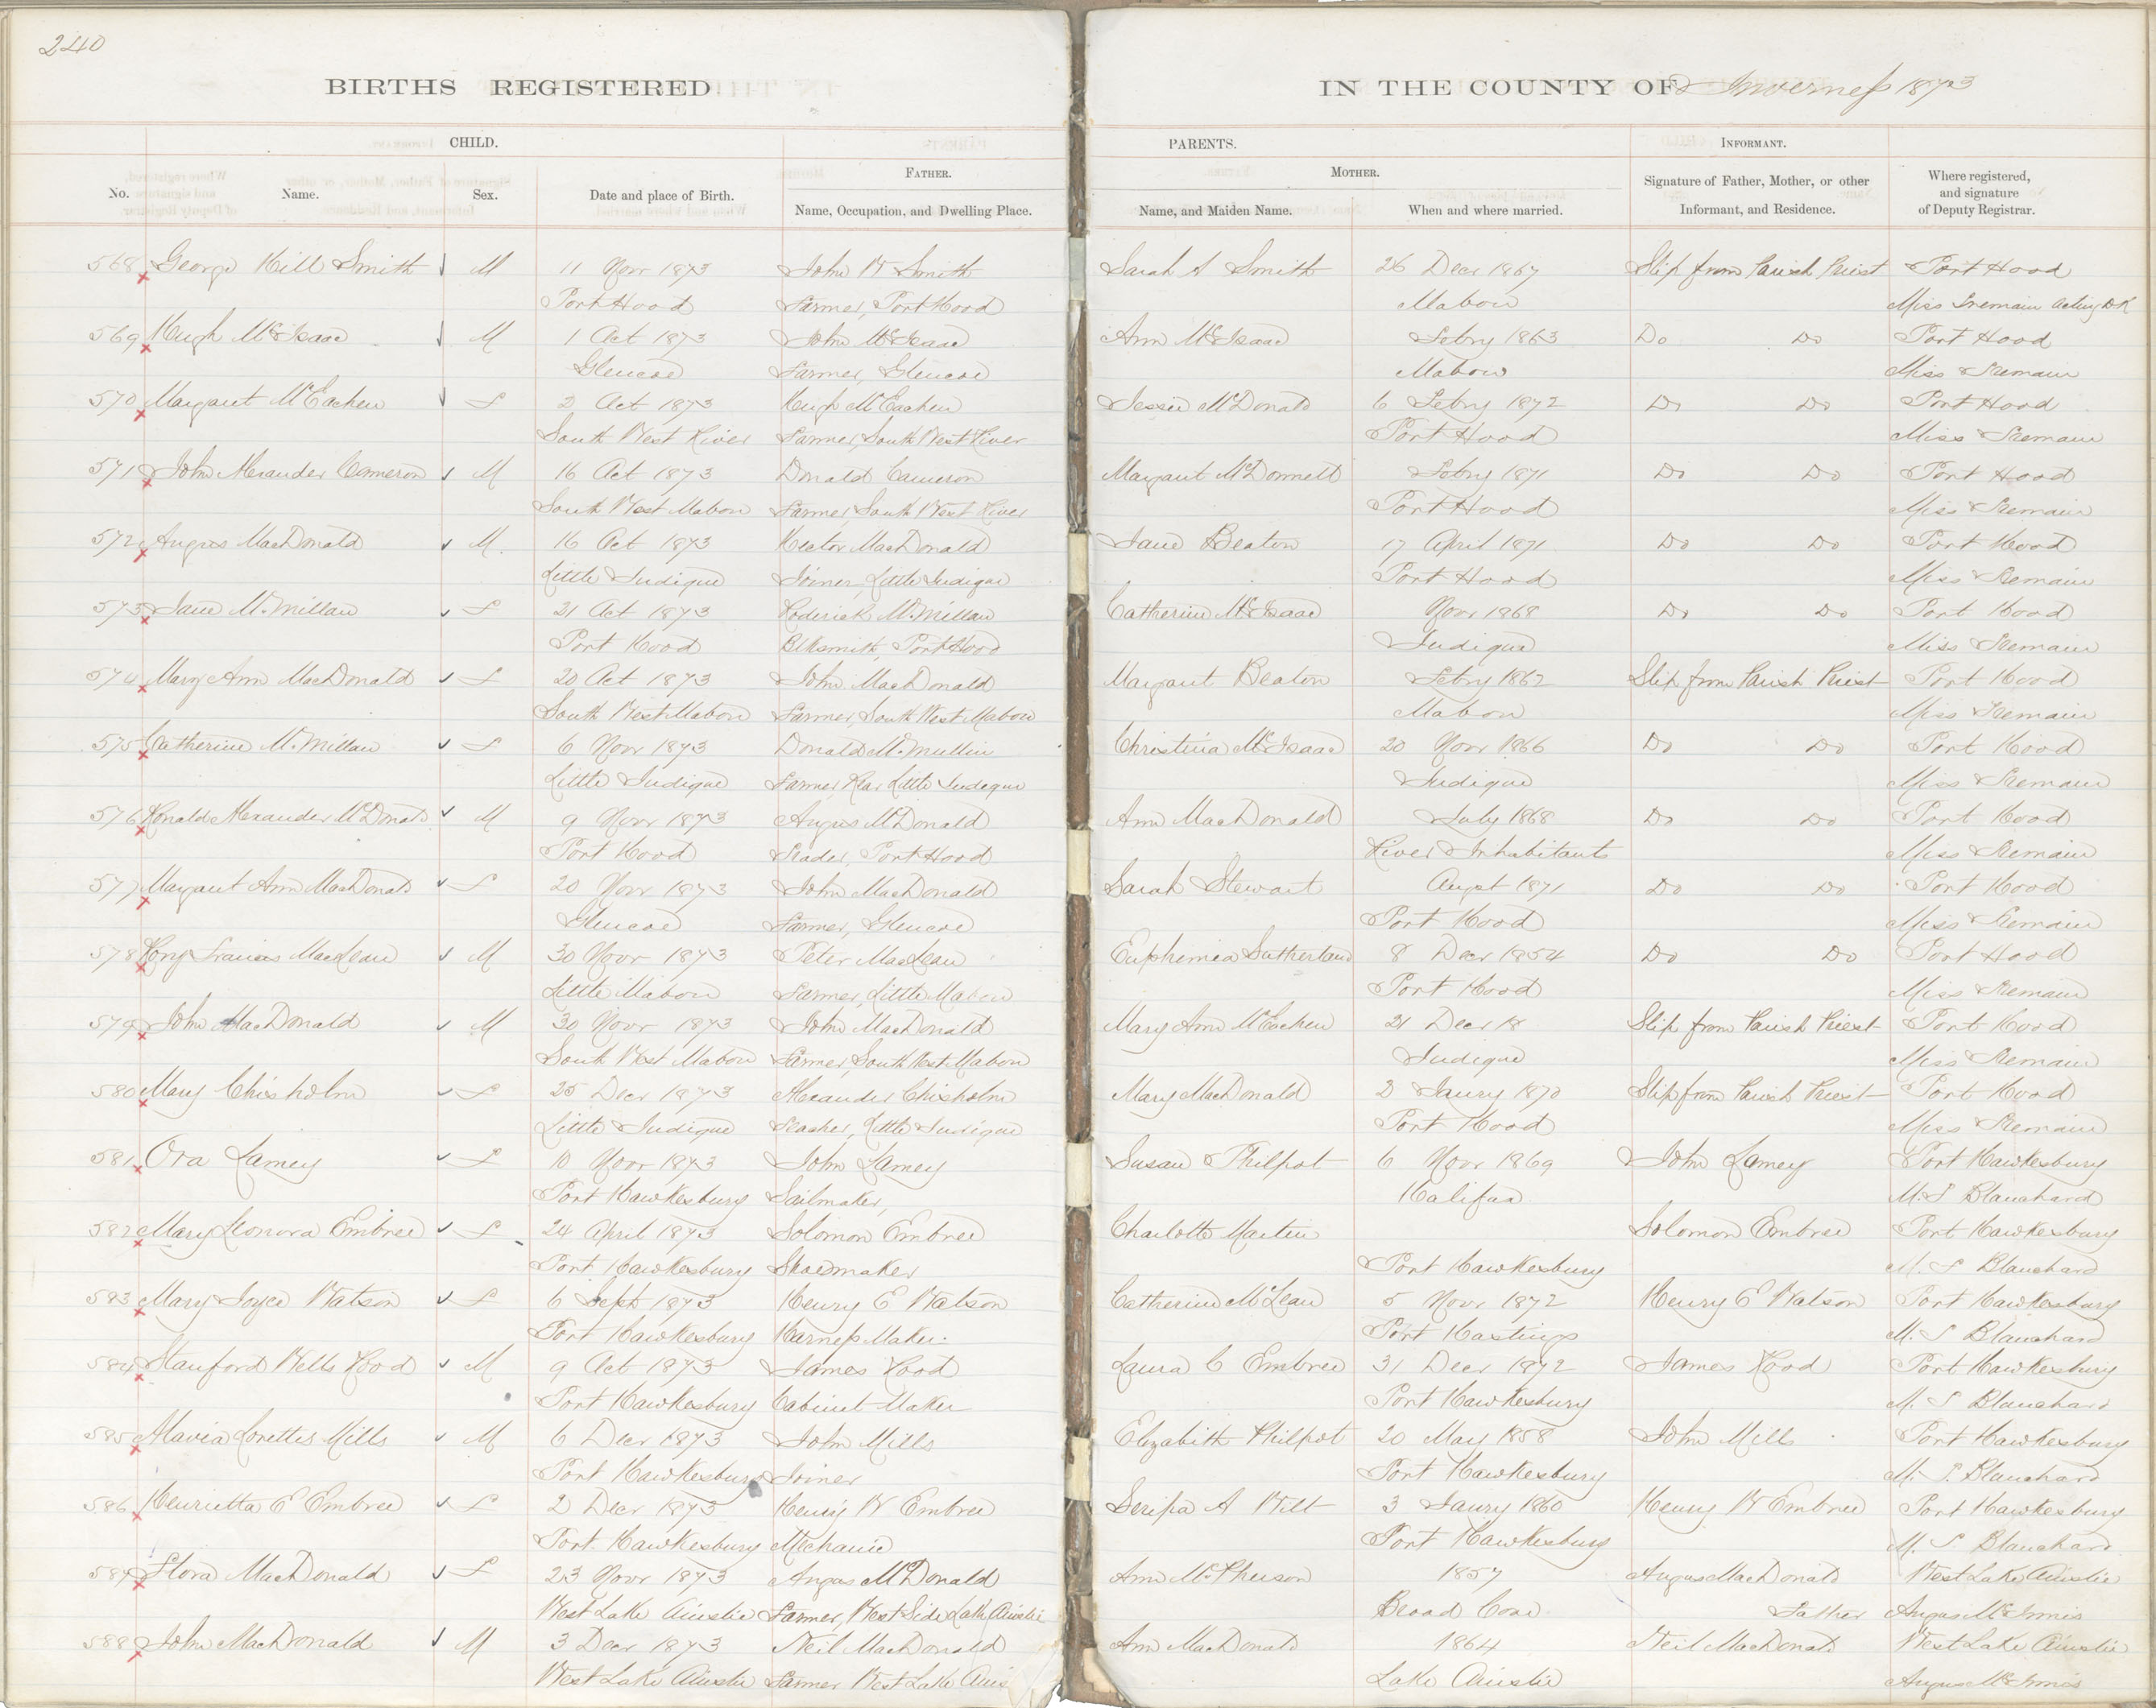 240
BIRTHS REGISTERED IN THE COUNTY OF Inverness 1873
CHILD. PARENTS. INFORMANT.
No. Name. Sex. Date and place of Birth. FATHER. MOTHER. Signature of Father, Mother, or other Where registered,
Name, Occupation, and Dwelling Place. Name, and Maiden Name. When and where married. Informant, and Residence. and signature
of Deputy Registrar.
568 George Hill Smith M 11 Novr 1873 John W Smith Sarah A Smith 26 Decr 1867 Slip from Parish Priest Port Hood
Port Hood Farmer, Port Hood Mabou Miss Tremain Acting DR
569 Hugh McIsaac M 1 Oct 1873 John McIsaac Ann McIsaac Febry 1863 Do Do Port Hood
Glencoe Farmer, Glencoe Mabou Miss Tremain
570 Margaret McEachen F 2 Oct 1873 Hugh McEachen Jessie McDonald 6 Febry 1872 Do Do Port Hood
South West River Farmer, South West River Port Hood Miss Tremain
571 John Alexander Cameron M 16 Oct 1873 Donald Cameron Margaret McDonnell Febry 1871 Do Do Port Hood
South West Mabou Farmer, South West River Port Hood Miss Tremain
572 Angus MacDonald M 16 Oct 1873 Hector MacDonald Jane Beaton 17 April 1871 Do Do Port Hood
Little Judique Joiner, Little Judique Port Hood Miss Tremain
573 Jane McMillan F 21 Oct 1873 Roderick McMillan Catherine McIsaac Novr 1868 Do Do Port Hood
Port Hood Blksmith, Port Hood Judique Miss Tremain
574 Mary Ann MacDonald F 20 Oct 1873 John MacDonald Margaret Beaton Febry 1862 Slip from Parish Priest Port Hood
South West Mabou Farmer, South West Mabou Mabou Miss Tremain
575 Catherine McMillan F 6 Novr 1873 Donald McMullin Christina McIsaac 20 Novr 1866 Do Do Port Hood
Little Judique Farmer, Rear Little Judique Judique Miss Tremain
576 Ronald Alexander McDonald M 9 Novr 1873 Angus McDonald Ann MacDonald July 1868 Do Do Port Hood
Port Hood Trader, Port Hood River Inhabitants Miss Tremain
577 Margaret Ann MacDonald F 20 Novr 1873 John MacDonald Sarah Stewart Augst 1871 Do Do Port Hood
Glencoe Farmer, Glencoe Port Hood Miss Tremain
578 Francis MacLean M 30 Novr 1873 Peter MacLean Euphemia Sutherland 8 Decr 1854 Do Do Port Hood
Little Mabou Farmer, Little Mabou Port Hood Miss Tremain
579 John MacDonald M 30 Novr 1873 John MacDonald Mary Ann McEachen 21 Decr 18 Slip from Parish Priest Port Hood
South West Mabou Farmer, South West Mabou Judique Miss Tremain
580 Mary Chisholm F 25 Decr 1873 Alexander Chisholm Mary MacDonald 2 Janry 1870 Slip from Parish Priest Port Hood
Little Judique Teacher, Little Judique Port Hood Miss Tremain
581 Ora Lamey F 10 Novr 1873 John Lamey Susan Philpot 6 Novr 1869 John Lamey Port Hawkesbury
Port Hawkesbury Sailmaker, Halifax M. S Blanchard
582 Mary Leonora Embree F 24 April 1873 Solomon Embree Charlotte Martin Solomon Embree Port Hawkesbury
Port Hawkesbury Shoemaker Port Hawkesbury M. S Blanchard
583 Mary Joyce Watson F 6 Sept 1873 Henry E Watson Catherine McLean 5 Novr 1872 Henry E Watson Port Hawkesbury
Port Hawkesbury Harness Maker. Port Hastings M. S Blanchard
584 Stanford Wells Hood M 9 Oct 1873 James Hood Laura C Embree 31 Decr 1872 James Hood Port Hawkesbury
Port Hawkesbury Cabinet Maker Port Hawkesbury M. S Blanchard
585 Mills M 6 Decr 1873 John Mills Elizabeth Philpot 20 May 1858 John Mills Port Hawkesbury
Port Hawkesbury Joiner Port Hawkesbury M. S. Blanchard
586 Henrietta E Embree F 2 Decr 1873 Henry W Embree A Wilt 3 Janry 1860 Henry W Embree Port Hawkesbury
Port Hawkesbury Mechanic Port Hawkesbury M. S Blanchard
587 Flora MacDonald F 23 Novr 1873 Angus McDonald Ann McPherson 1857 Angus MacDonald West Lake Ainslie
West Lake Ainslie Farmer, West Side Lake Ainslie Broad Cove Father Angus McInnis
588 John MacDonald M 3 Decr 1873 Neil MacDonald Ann MacDonald 1864 Neil MacDonald West Lake Ainslie
West Lake Ainslie Farmer West Lake Ains Lake Ainslie Angus McInnis